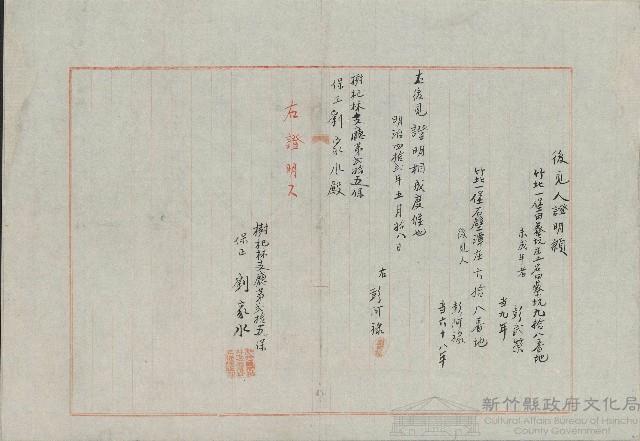 後見人證明願
竹北一堡田藔坑庄土名田藔坑九拾八番地
未成年者 彭武榮
當九年
竹北一堡石壁潭庄六拾八番地
後見人 彭阿祿
當六十八年
右後見證明相成度候也
明治四拾弍年五月拾八日
右 彭阿祿
樹杞林支廳第弍拾五保
保正劉家水殿
右證明ス
樹杞林支廳第弍拾五保
保正 劉家水
新竹縣政府文化局
Cultural Affairs Bureau of Hsinchu
County Government